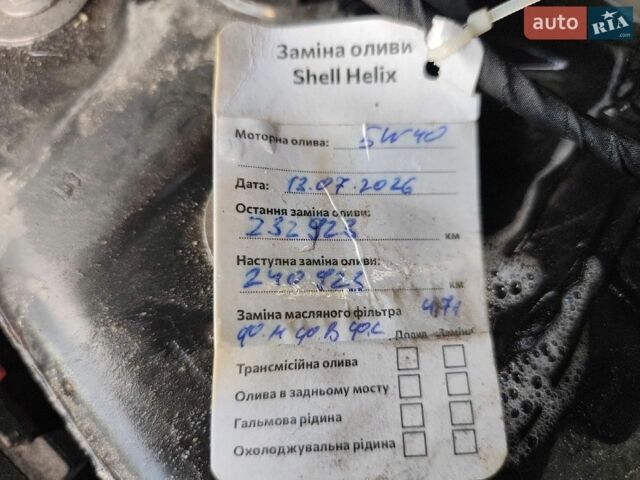 auto RIA.com
Заміна оливи
Shell Helix
Моторна олива: 5W40
Дата: 13.07.2026
Остання заміна оливи:
232 923 км
Наступна заміна оливи:
240 923 км
Заміна масляного фільтра 4,71
ф.м ф.в ф.с Долив Заміна
Трансмісійна олива
Олива в задньому мосту
Гальмова рідина
Охолоджувальна рідина